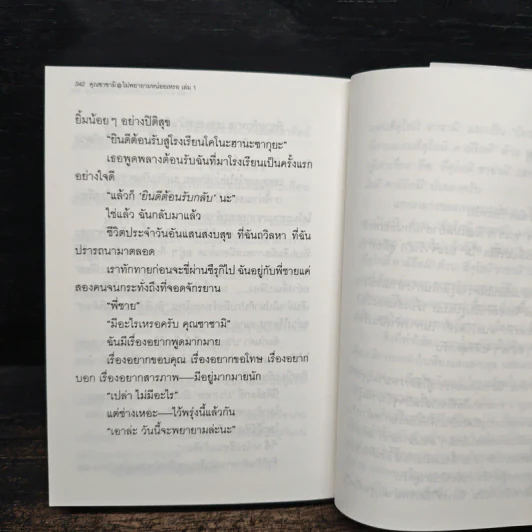 342 คุณซาซามิ@ไม่พยายามหน่อยเหรอ เล่ม 1
ยิ้มน้อยๆ อย่างปิติสุข
“ยินดีต้อนรับสู่โรงเรียนโคโนะฮานะซากุยะ”
เธอพูดพลางต้อนรับฉันที่มาโรงเรียนเป็นครั้งแรก
อย่างใจดี
“แล้วก็ ‘ยินดีต้อนรับกลับ’ นะ”
ใช่แล้ว ฉันกลับมาแล้ว
ชีวิตประจำวันอันแสนสงบสุข ที่ฉันถวิลหา ที่ฉัน
ปรารถนามาตลอด
เราทักทายก่อนจะขี่ผ่านซึรุกิไป ฉันอยู่กับพี่ชายแค่
สองคนจนกระทั่งถึงที่จอดจักรยาน
“พี่ชาย”
“มีอะไรเหรอครับ คุณซาซามิ”
ฉันมีเรื่องอยากพูดมากมาย
เรื่องอยากขอบคุณ เรื่องอยากขอโทษ เรื่องอยาก
บอก เรื่องอยากสารภาพ──มีอยู่มากมายนัก
“เปล่า ไม่มีอะไร”
แต่ช่างเหอะ──ไว้พรุ่งนี้แล้วกัน
“เอาล่ะ วันนี้จะพยายามล่ะนะ”